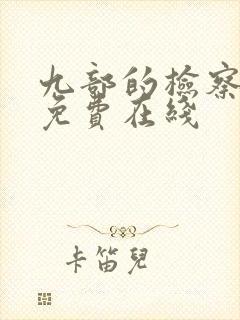 九部的檢察
免費在綫
卡笛兒